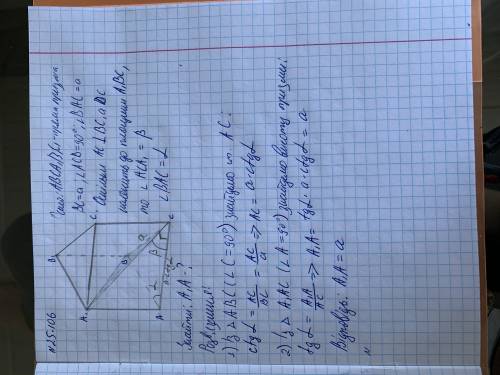 N25.106
Дано: ABCA₁B₁C₁ - пряма призма
BC=a, ∠ACB=90°; ∠BAC=α
Оскільки AC⊥BC, а DC
належить до площини A₁BC,
то ∠ACA₁=β
∠BAC=α
B₁
A₁
C₁
B
A
C
a
α
β
a·ctgα
Знайти: A₁A-?
Розв'язання:
1) Із △ABC (∠C=90°) знайдемо AC:
ctgα = AC/BC = AC/a ⇒ AC = a·ctgα
2) Із △A₁AC (∠A=90°) знайдемо висоту призми:
tgα = A₁A/AC ⇒ A₁A = tgα·a·ctgα = a
Відповідь: A₁A=a